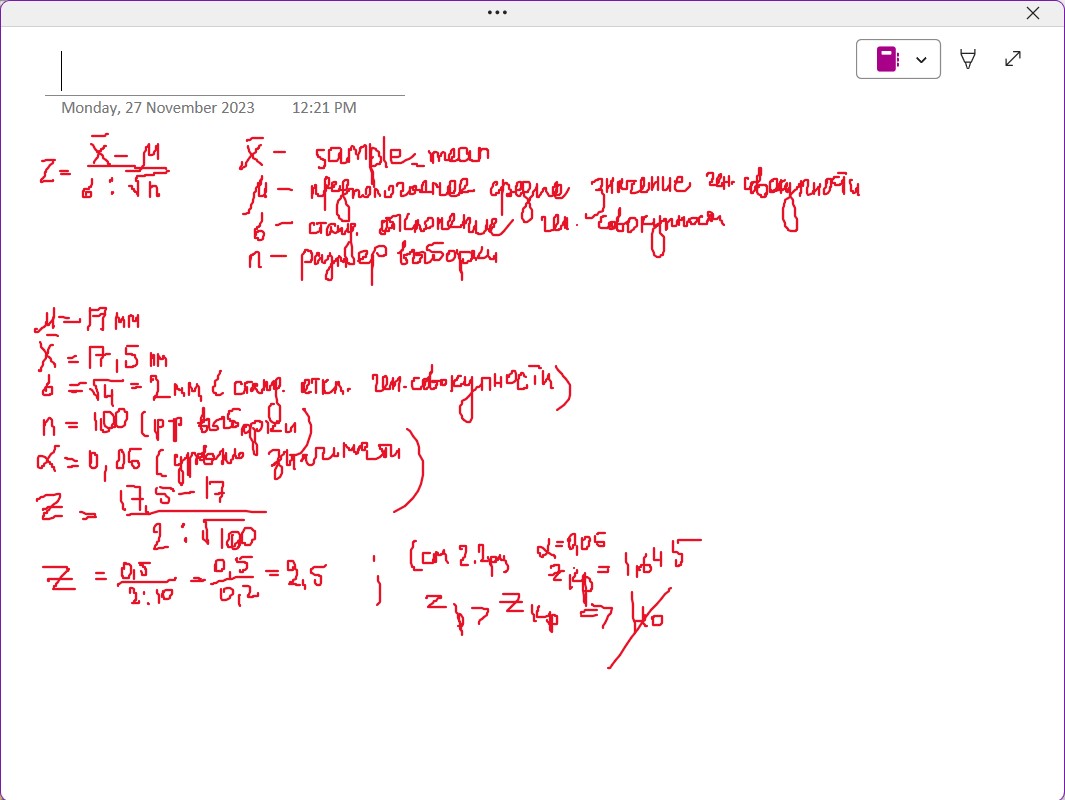 •••
Monday, 27 November 2023 12:21 PM
Z = (X̄ - μ) / (σ : √n)
X̄ - sample_mean
μ - предполагаемое среднее значение ген. совокупности
σ - станд. отклонение ген. совокупности
n - размер выборки
μ = 17 мм
X̄ = 17,5 мм
σ = √4 = 2 мм (станд. откл. ген. совокупности)
n = 100 (р-р выборки)
α = 0,05 (уровень значимости)
Z = (17,5 - 17) / (2 : √100)
Z = 0,5 / (2:10) = 0,5 / 0,2 = 2,5 ;
(см α = 0,05
Zкр = 1,645
Zр > Zкр => H₀